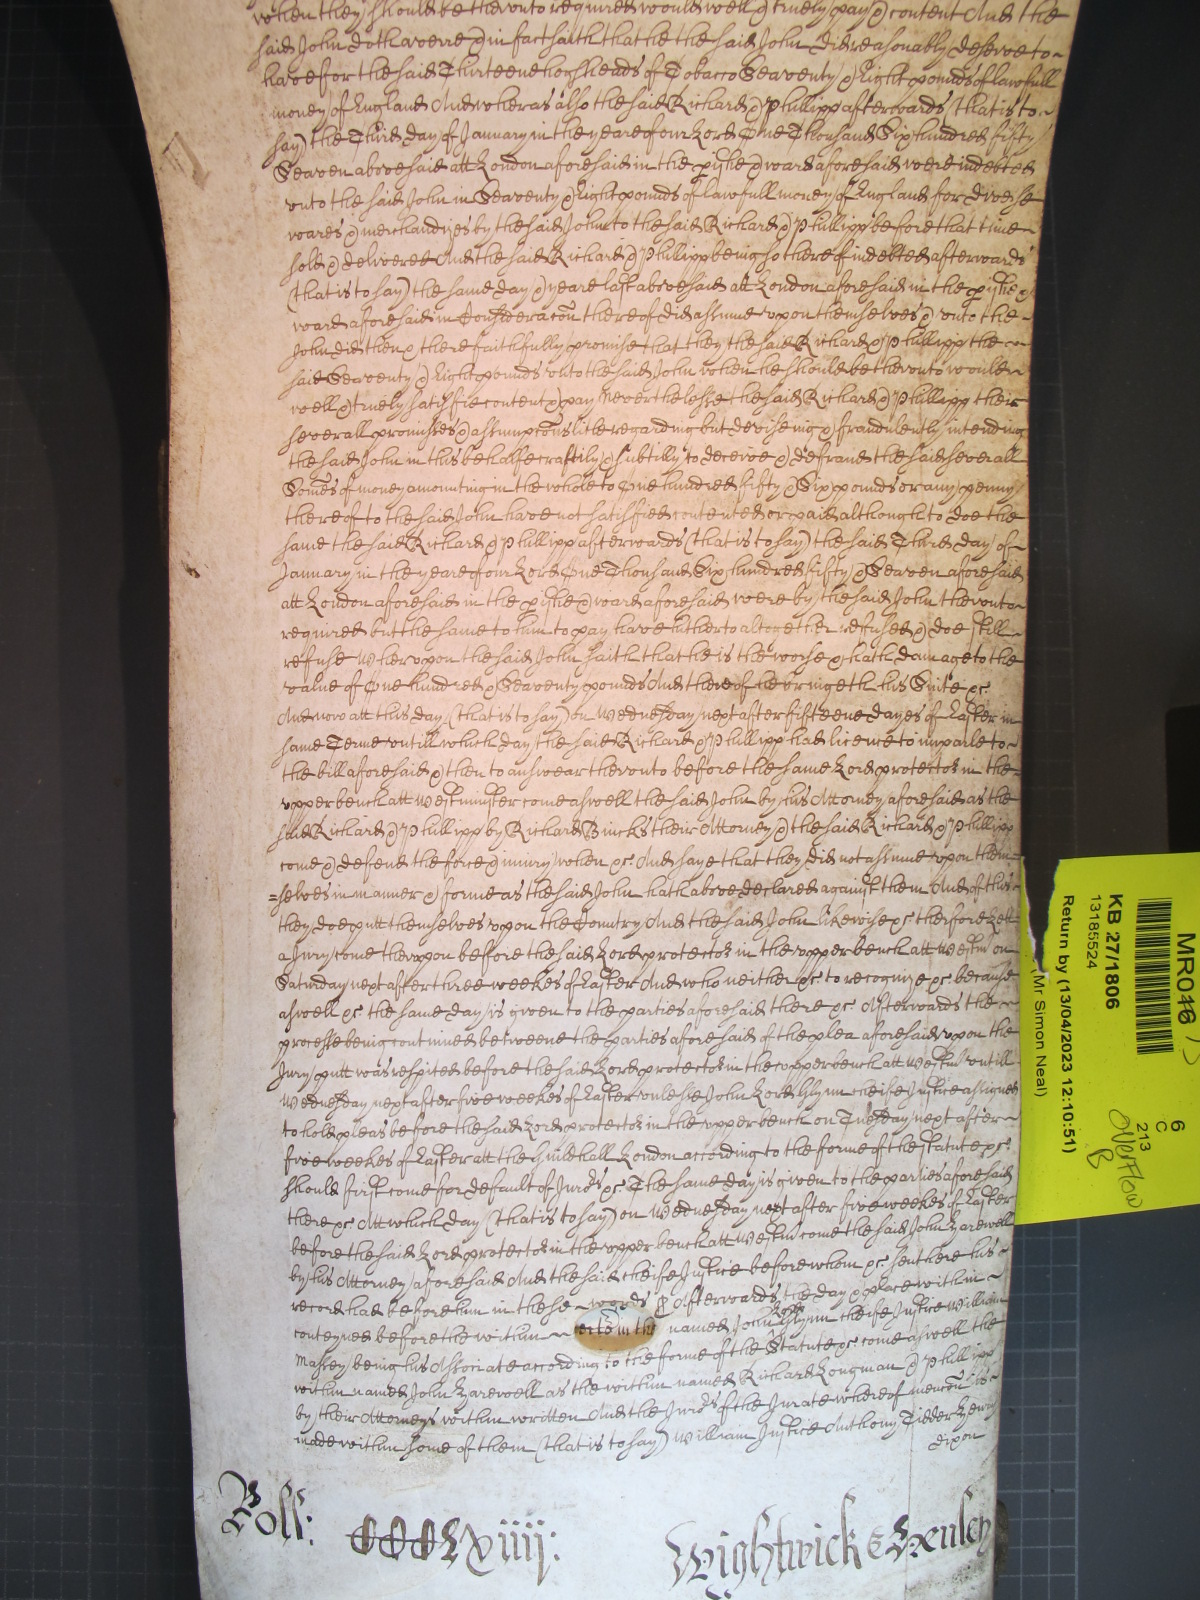 when they should be therunto required would well & truely pay & content And the
said John doth averre & in fact saith that he the said John did reasonably deserve to
have for the said Thirteene hogsheads of Tobacco Seaventy & Eight pounds of lawfull
money of England And wheras also the said Richard & Phillipp afterwards (that is to
say) the Third day of January in the yeare of our Lord One Thousand Six hundred fifty
Seaven abovesaid att London aforesaid in the pishe & ward aforesaid were indebted
unto the said John in Seaventy & Eight pounds of lawfull money of England for diverse
wares & merchandizes by the said John to the said Richard & Phillipp before that time
sold & delivered And the said Richard & Phillipp being so thereof indebted afterwards
(that is to say) the same day & yeare last abovesaid att London aforesaid in the pishe &
ward aforesaid in Consideracon thereof did assume upon themselves & unto the
John did then & there faithfully promise that they the said Richard & Phillipp the
said Seaventy & Eight pounds unto the said John when he should be therunto would
well & truely satisfie content & pay Neverthelesse the said Richard & Phillipp their
severall promisses & assumpcons litle regarding but deviseing & fraudulently intending
the said John in this behalfe craftily & subtilly to deceive & defraud the said severall
Somes of money amounting in the whole to One hundred fifty & Six pounds or any penny
thereof to the said John have not satisfied contented or paid although to doe the
same the said Richard & Phillipp afterwards (that is to say) the said Third day of
January in the yeare of our Lord One Thousand Six hundred fifty & Seaven aforesaid
att London aforesaid in the pishe & ward aforesaid were by the said John therunto
required but the same to him to pay have hitherto altogether refused & doe still
refuse Wherupon the said John saith that he is the worse & hath damage to the
value of One hundred & Seaventy pounds And thereof he bringeth his Suite &c
And now att this day (that is to say) on Wednesday next after fifteene dayes of Easter in
same Terme untill which day the said Richard & Phillipp had licence to imparle to
the bill aforesaid & then to answear therunto before the same Lord protector in the
upper bench att Westminster come aswell the said John by his Attorney aforesaid as the
said Richard & Phillipp by Richard Bincks their Attorney & the said Richard & Phillipp
come & defend the force & injury when &c And saye that they did not assume upon them=
=selves in manner & forme as the said John hath above declared against them And of this
they doe putt themselves upon the Country And the said John likewise &c therfore Lett
a Jury come therupon before the said Lord protector in the upper bench att Westm on
Saturday next after three weekes of Easter And who neither &c to recognize &c because
aswell &c the same day is given to the parties aforesaid there &c Afterwards the
processe being continued betweene the parties aforesaid of the plea aforesaid upon the
Jury putt was respited before the said Lord protector in the upper bench att Westm untill
Wednesday next after five weekes of Easter unlesse John Lord Glynn cheife Justice assigned
to hold pleas before the said Lord protector in the upper bench on Tuesday next after
five weekes of Easter att the Guildhall London according to the forme of the statute &c
should first come for default of Jurors &c The same day is given to the parties aforesaid
there &c Att which day (that is to say) on Wednesday next after five weekes of Easter
before the said Lord protector in the upper bench att Westm come the said John Harewell
by his Attorney aforesaid And the said cheife Justice before whom &c sent here his
record had before him in these words Afterwards the day & place within
conteyned before the within named John Lord Glynn cheife Justice William
Massey being his Associate according to the forme of the Statute &c come aswell the
within named John Harewell as the within named Richard Longman & Phillipp
by their Attorneys within written And the Jurors of the Jurate whereof mencon is
made within some of them (that is to say) William Justice Anthony Tidder
dixon
Roll: CCCLxiiij:
Wightwick & Henley
MR04
KB 27/1806
13185524
Return by (13/04/2023 12:10:51)
(Mr Simon Neal)
6
C
213
Overflow
B